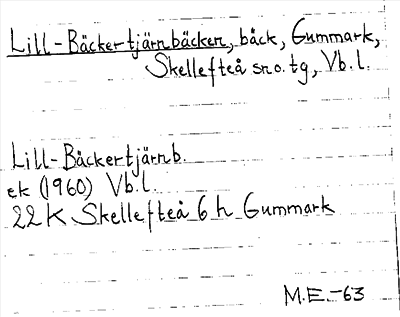 Lill-Bäckertjärnbäcken, bäck, Gummark,
Skellefteå sn o. tg, Vb. l.
Lill-Bäckertjärnb.
ek (1960) Vb. l.
22 K Skellefteå 6 h Gummark
M.E.-63